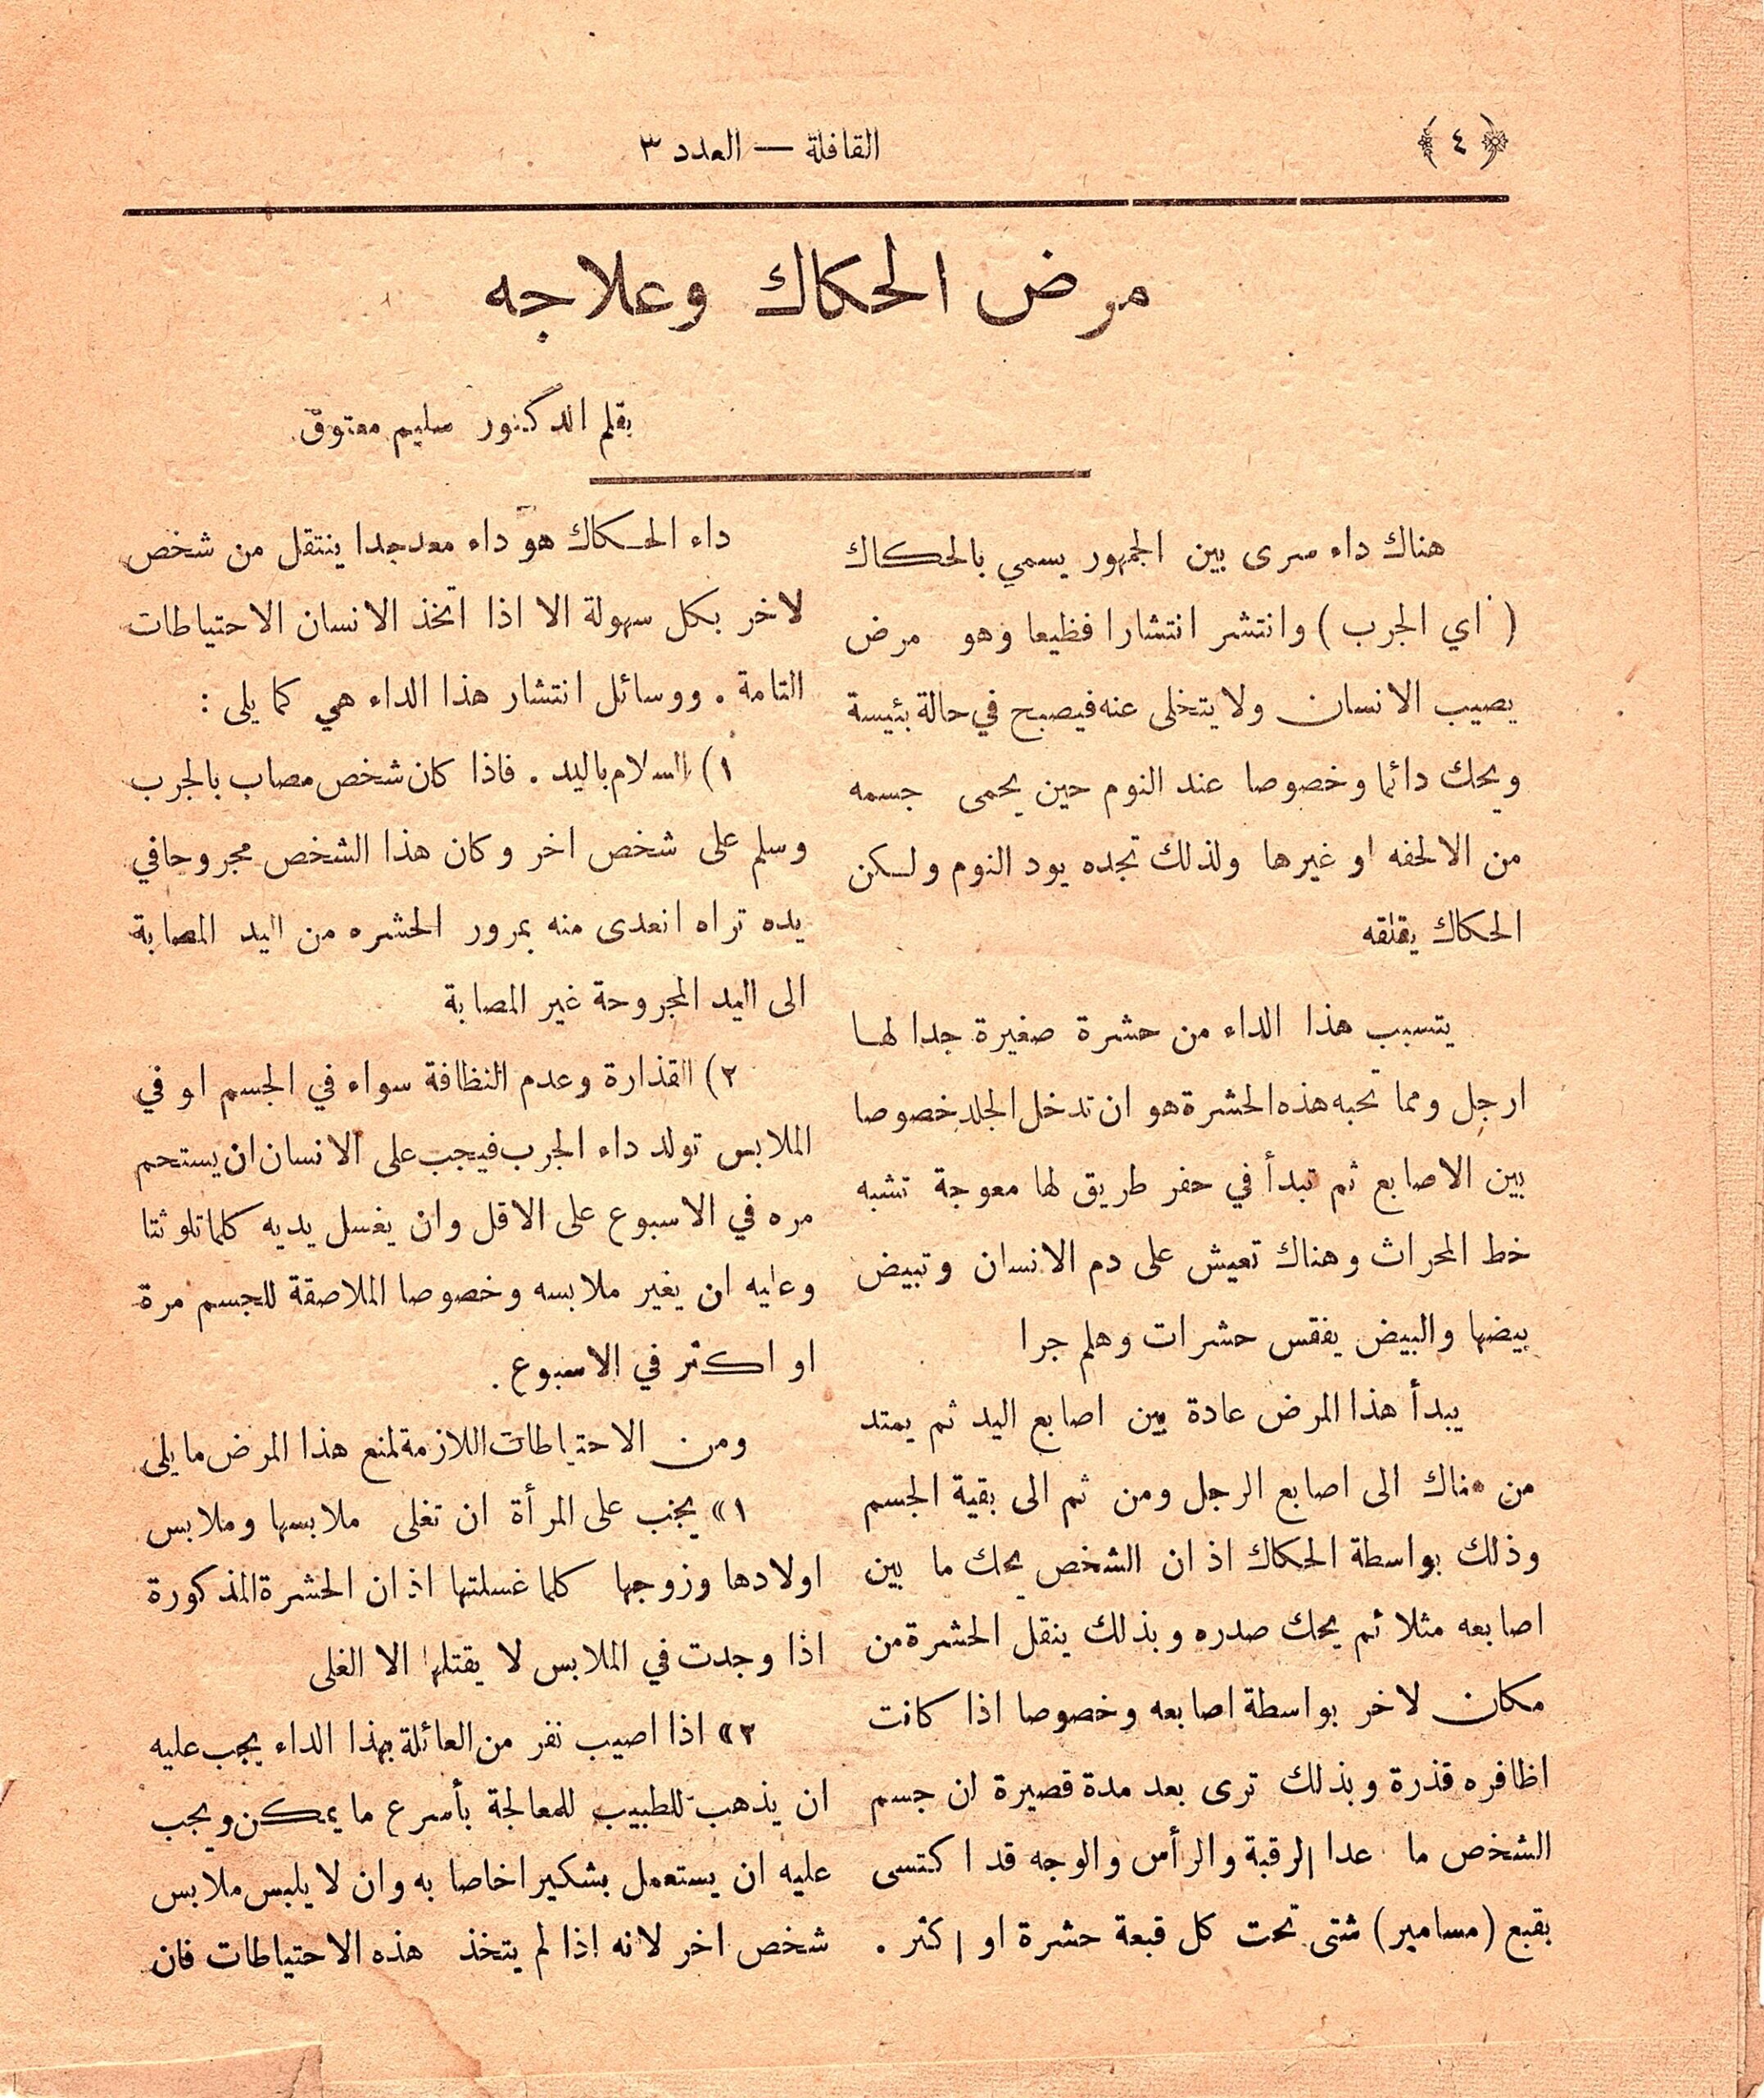 ﴿ ٤ ﴾
القافلة — العدد ٣
مرض الحكاك وعلاجه
بقلم الدكتور سليم معتوق
هناك داء سرى بين الجمهور يسمي بالحكاك
( اي الجرب ) وانتشر انتشارا فظيعا وهو مرض
يصيب الانسان ولا يتخلى عنه فيصبح في حالة بئيسة
ويحك دائما وخصوصا عند النوم حين يحمى جسمه
من الالحفه او غيرها ولذلك تجده يود النوم ولكن
الحكاك يقلقه
يتسبب هذا الداء من حشرة صغيرة جدا لها
ارجل ومما تحبه هذه الحشرة هو ان تدخل الجلد خصوصا
بين الاصابع ثم تبدأ في حفر طريق لها معوجة تشبه
خط المحراث وهناك تعيش على دم الانسان وتبيض
بيضها والبيض يفقس حشرات وهلم جرا
يبدأ هذا المرض عادة بين اصابع اليد ثم يمتد
من هناك الى اصابع الرجل ومن ثم الى بقية الجسم
وذلك بواسطة الحكاك اذ ان الشخص يحك ما بين
اصابعه مثلا ثم يحك صدره وبذلك ينقل الحشرة من
مكان لاخر بواسطة اصابعه وخصوصا اذا كانت
اظافره قذرة وبذلك ترى بعد مدة قصيرة ان جسم
الشخص ما عدا الرقبة والرأس والوجه قد اكتسى
بقبع (مسامير) شتى تحت كل قبعة حشرة او اكثر .
داء الحكاك هو داء معد جدا ينتقل من شخص
لاخر بكل سهولة الا اذا اتخذ الانسان الاحتياطات
التامة . ووسائل انتشار هذا الداء هي كما يلى :
١) السلام باليد . فاذا كان شخص مصاب بالجرب
وسلم على شخص اخر وكان هذا الشخص مجروحا في
يده تراه انعدى منه بمرور الحشره من اليد المصابة
الى اليد المجروحة غير المصابة
٢) القذارة وعدم النظافة سواء في الجسم او في
الملابس تولد داء الجرب فيجب على الانسان ان يستحم
مره في الاسبوع على الاقل وان يغسل يديه كلما تلوثتا
وعليه ان يغير ملابسه وخصوصا الملاصقة للجسم مرة
او اكثر في الاسبوع .
ومن الاحتياطات اللازمة لمنع هذا المرض ما يلى
١» يجب على المرأة ان تغلى ملابسها وملابس
اولادها وزوجها كلما غسلتها اذ ان الحشرة المذكورة
اذا وجدت في الملابس لا يقتلها الا الغلى
٢» اذا اصيب نفر من العائلة بهذا الداء يجب عليه
ان يذهب للطبيب للمعالجة بأسرع ما يمكن ويجب
عليه ان يستعمل بشكيرا خاصا به وان لا يلبس ملابس
شخص اخر لانه اذا لم يتخذ هذه الاحتياطات فان